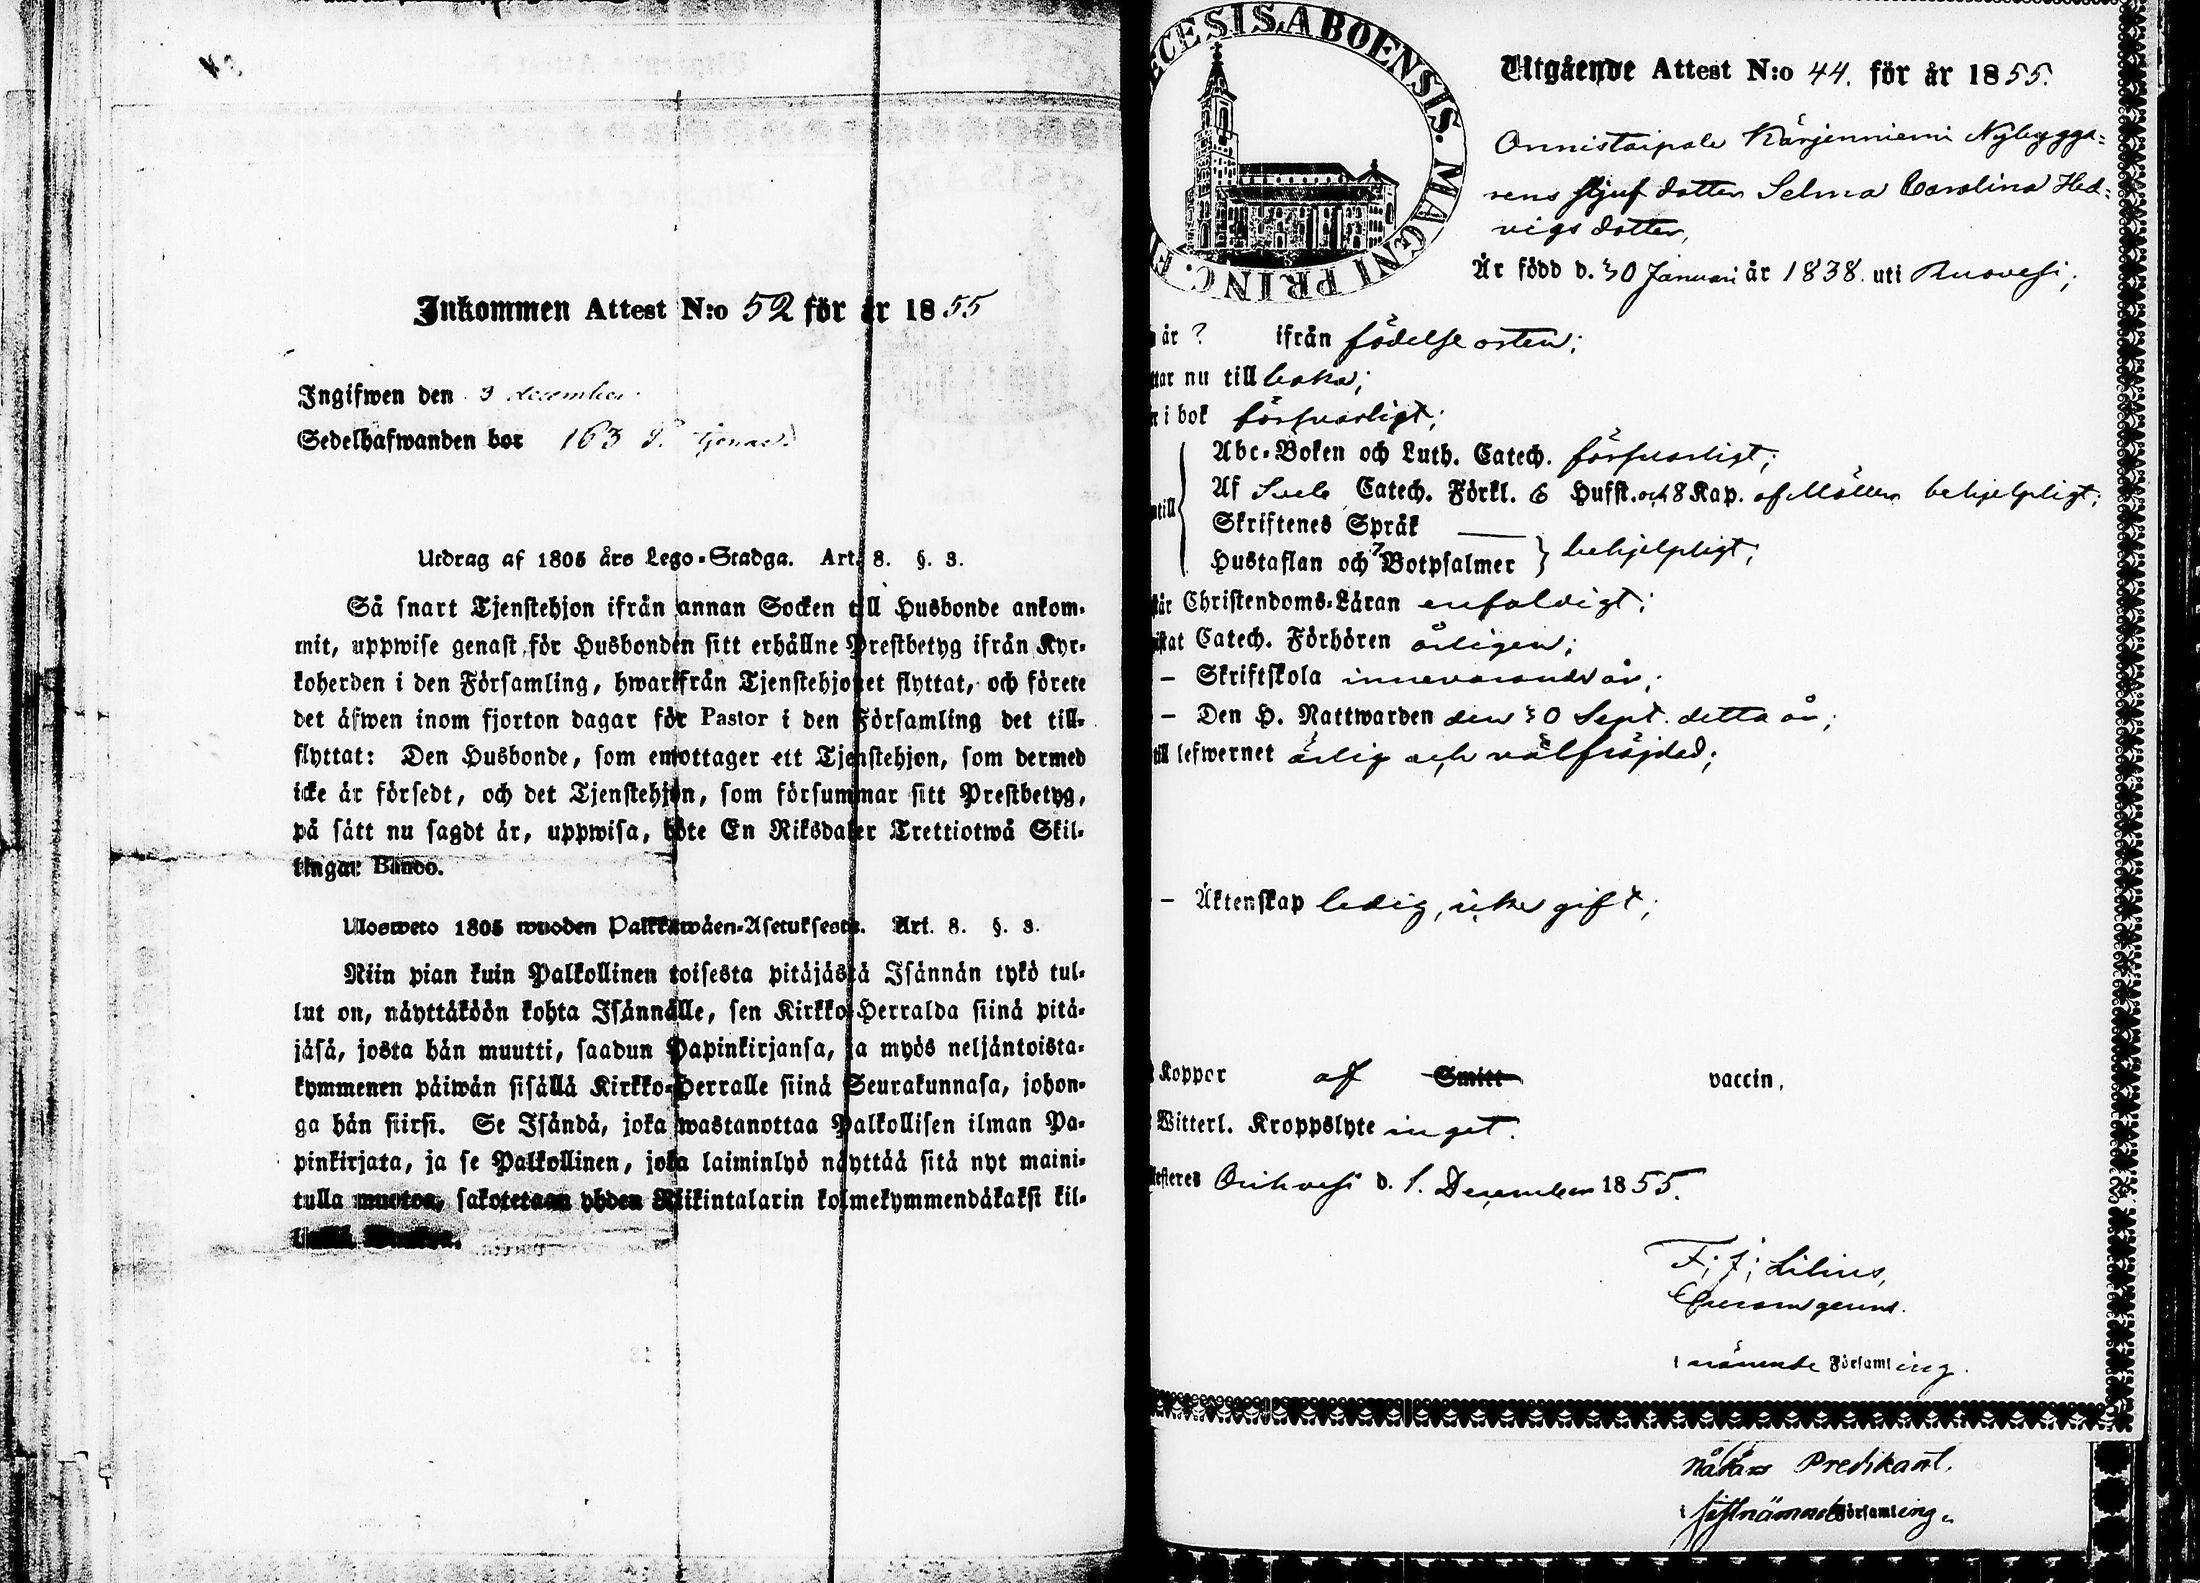 Inkommen Attest N:o 52 för år 1855
Ingifwen den 3 december.
Sedelhafwanden bor 163 S. tjenar.
Utdrag af 1805 års Lego-Stadga. Art. 8. §. 3.
Så snart Tjenstehjon ifrån annan Socken till Husbonde ankom-
mit, uppwise genast för Husbonden sitt erhållne Prestbetyg ifrån Kyr-
koherden i den Församling, hwarifrån Tjenstehjonet flyttat, och förete
det äfwen inom fjorton dagar för Pastor i den Församling det till-
flyttat: Den Husbonde, som emottager ett Tjenstehjon, som dermed
icke är försedt, och det Tjenstehjon, som försummar sitt Prestbetyg,
på sätt nu sagdt är, uppwisa, böte En Riksdaler Trettiotwå Skil-
lingar Banco.
Ulosweto 1805 wuoden Palkkawäen-Asetuksesta. Art. 8. §. 3.
Niin pian kuin Palkollinen toisesta pitäjästä Isännän tykö tul-
lut on, näyttäköön kohta Isännälle, sen Kirkko-Herralda siinä pitä-
jäsä, josta hän muutti, saadun Papinkirjansa, ja myös neljäntoista-
kymmenen päiwän sisällä Kirkko-Herralle siinä Seurakunnasa, johon-
ga hän siirsi. Se Isändä, joka wastanottaa Palkollisen ilman Pa-
pinkirjata, ja se Palkollinen, joka laiminlyö näyttää sitä nyt maini-
tulla muotoa, sakotetaan yhden Riikintalarin kolmekymmendäkaksi kil-
ECESIS ABOENSIS. MAGNI PRINC. F
Utgående Attest N:o 44. för år 1855.
Onnistaipale Kärjenniemi Nybygga-
rens styuf dotter Selma Carolina Hed-
vigs dotter,
Är född d. 30 Januari år 1838. uti Ruovesi;
år ? ifrån födelse orten;
nu till baka;
i bok försvarligt;
Abc-Boken och Luth. Catech. försvarligt;
Af Svebs Catech. Förkl. 6 Hufst. och 8 Kap. af Möllers behjelpligt;
till Skriftenes Språk —
Hustaflan och 7 Botpsalmer } behjelpligt;
Christendoms-Läran enfaldigt;
Catech. Förhören årligen;
– Skriftskola innevarande år;
– Den H. Nattwarden den 30 Sept. detta år;
till lefwernet ärlig och välfräjdad;
– Äktenskap ledig, icke gift;
Koppor af Smitt vaccin.
Witterl. Kroppslyte inget.
Orihvesi d. 1. December 1855.
F; J; Lilius,
i nämnde Församling.
Nådårs Predikant.
i sistnämnde Församling.